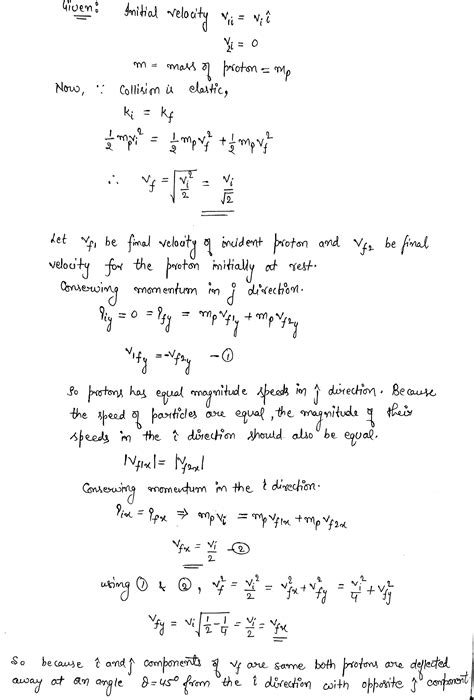 Given: Initial velocity v₁ᵢ = vᵢ î
v₂ᵢ = 0
m = mass of proton = mₚ
Now, ∵ Collision is elastic,
Kᵢ = K_f
½ mₚvᵢ² = ½ mₚv_f² + ½ mₚv_f²
∴ v_f = √(vᵢ²/2) = vᵢ/√2
Let v_f1 be final velocity of incident proton and v_f2 be final
velocity for the proton initially at rest.
Conserving momentum in ĵ direction.
P_iy = 0 = P_fy = mₚv_f1y + mₚv_f2y
v_1fy = -v_f2y - ①
So protons has equal magnitude speeds in ĵ direction. Because
the speed of particles are equal, the magnitude of their
speeds in the î direction should also be equal.
|v_f1x| = |v_f2x|
Conserving momentum in the î direction.
P_ix = P_fx ⇒ mₚvᵢ = mₚv_f1x + mₚv_f2x
v_fx = vᵢ/2 - ②
using ① & ②, v_f² = vᵢ²/2 = v_fx² + v_fy² = vᵢ²/4 + v_fy²
v_fy = vᵢ √(1/2 - 1/4) = vᵢ/2 = v_fx
So because î and ĵ components of v_f are same both protons are deflected
away at an angle θ = 45° from the î direction with opposite ĵ component